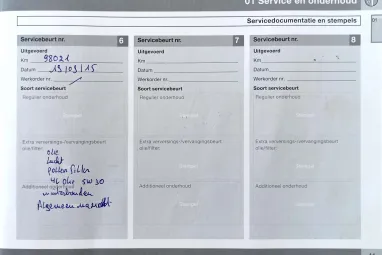 01 Service en onderhoud
Servicedocumentatie en stempels
01
Servicebeurt nr. 6
Uitgevoerd
Km 98021
Datum 13/03/15
Werkorder nr.
Soort servicebeurt
Regulier onderhoud
Stempel
Extra verversings-/vervangingsbeurt
olie/filter
olie
lucht
pollen filter
olie 5W30
Additioneel onderhoud
Algemeen
Servicebeurt nr. 7
Uitgevoerd
Km
Datum
Werkorder nr.
Soort servicebeurt
Regulier onderhoud
Stempel
Extra verversings-/vervangingsbeurt
olie/filter
Stempel
Additioneel onderhoud
Stempel
Servicebeurt nr. 8
Uitgevoerd
Km
Datum
Werkorder nr.
Soort servicebeurt
Regulier onderhoud
Stempel
Extra verversings-/vervangingsbeurt
olie/filter
Stempel
Additioneel onderhoud
Stempel